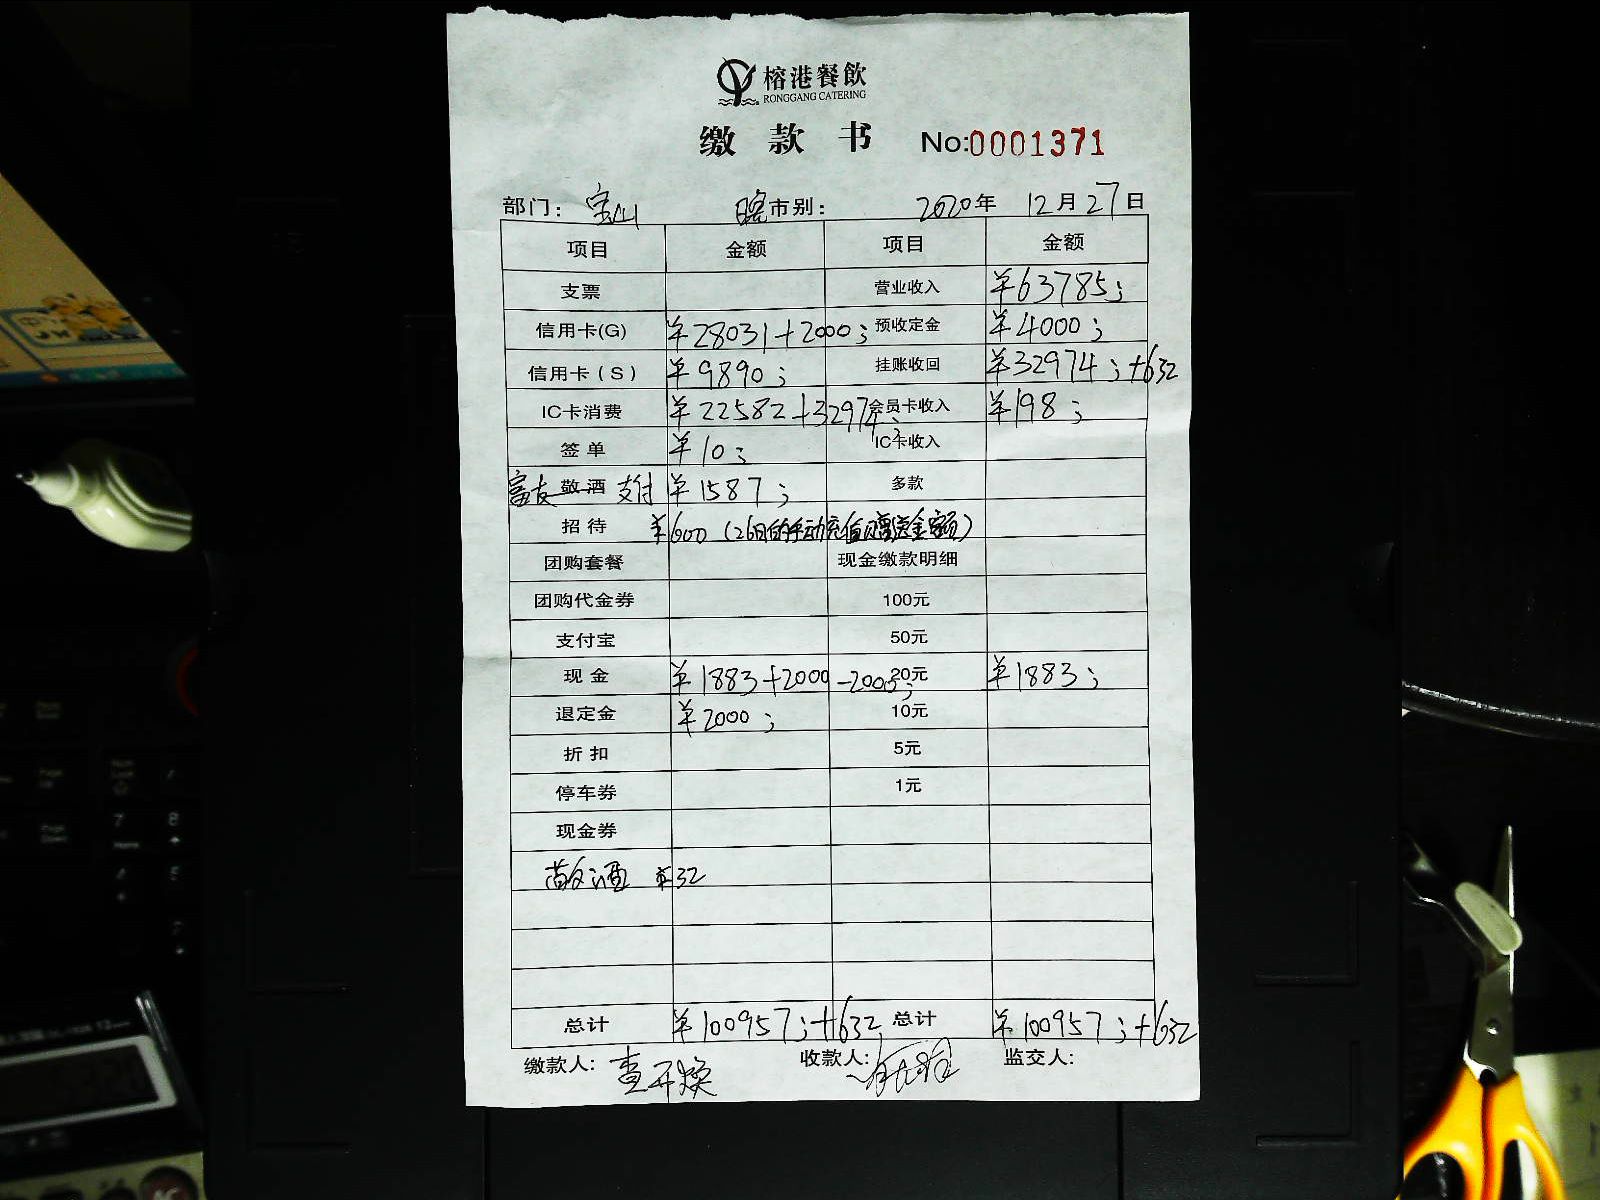 榕港餐飲
RONGGANG CATERING
缴款书 No:0001371
部门: 宝山 晚市别: 2020年 12月27日
项目 金额 项目 金额
支票 营业收入 ¥63785;
信用卡(G) ¥28031+2000; 预收定金 ¥4000;
信用卡(S) ¥9890; 挂账收回 ¥32974;+632
IC卡消费 ¥22582+32974; 会员卡收入 ¥198;
签单 ¥10; IC卡收入
富友 敬酒 支付 ¥1587; 多款
招待 ¥600 (26日的手动充值赠送金额)
团购套餐 现金缴款明细
团购代金券 100元
支付宝 50元
现金 ¥1883+2000-2000; 20元 ¥1883;
退定金 ¥2000; 10元
折扣 5元
停车券 1元
现金券
敬酒 ¥32
总计 ¥100957;+632 总计 ¥100957;+632
缴款人: 查开焕 收款人: 监交人:
7 8
Home
4 5